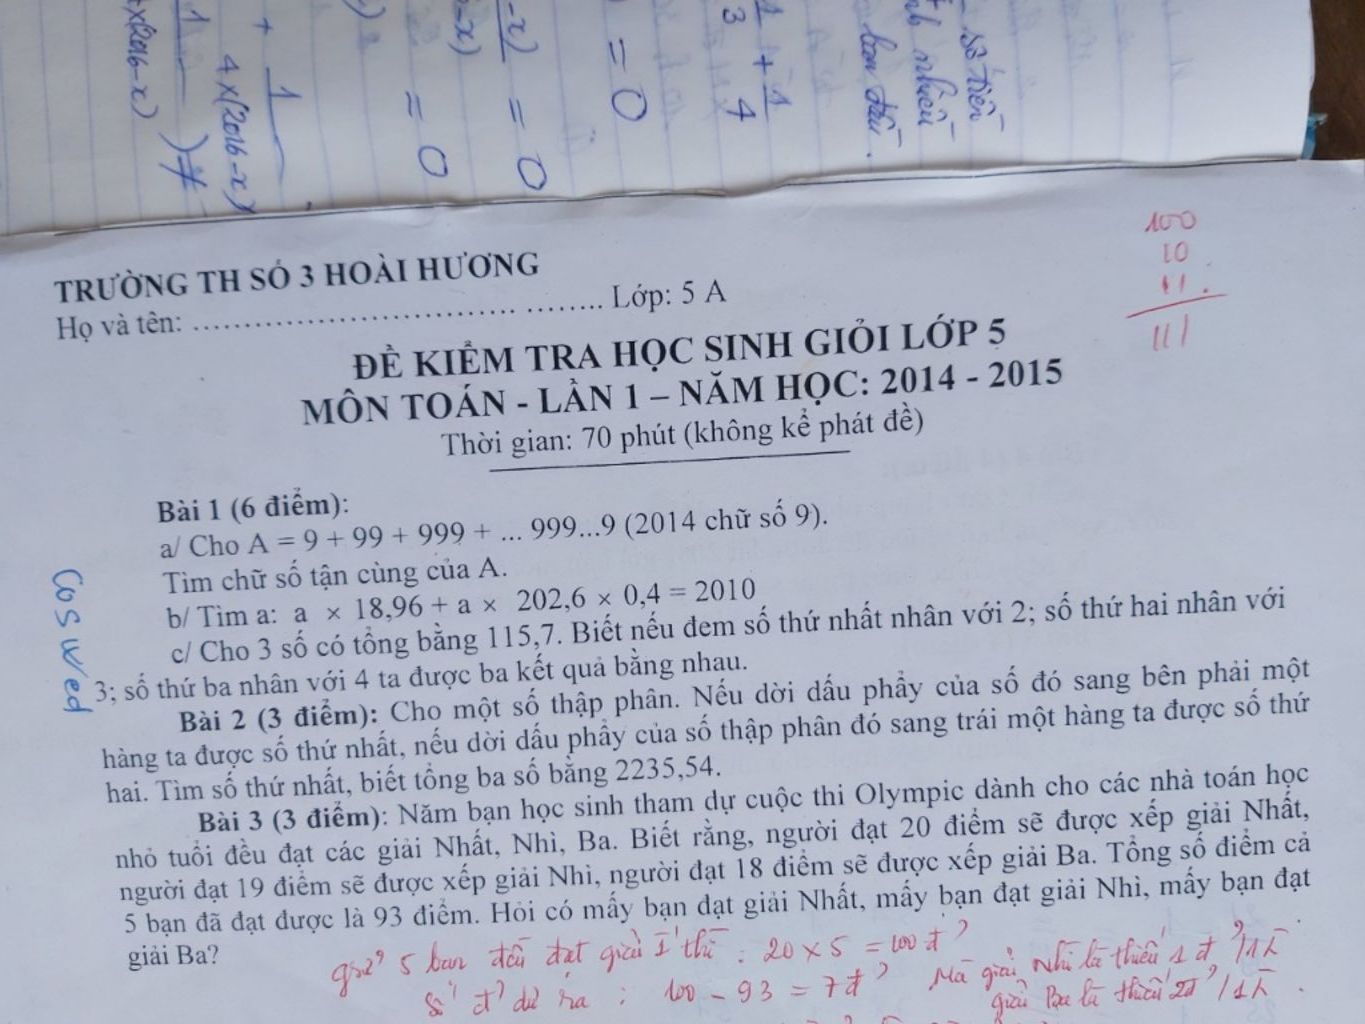 1
+
4 x (2016 - x)
= 0
= 0
= 0
1 + 1
3 4
số tiền
nhiêu
ban đầu.
TRƯỜNG TH SỐ 3 HOÀI HƯƠNG
Họ và tên: ........................................ Lớp: 5 A
100
10
11.
111
ĐỀ KIỂM TRA HỌC SINH GIỎI LỚP 5
MÔN TOÁN - LẦN 1 – NĂM HỌC: 2014 - 2015
Thời gian: 70 phút (không kể phát đề)
Bài 1 (6 điểm):
a/ Cho A = 9 + 99 + 999 + ... 999...9 (2014 chữ số 9).
Tìm chữ số tận cùng của A.
b/ Tìm a: a × 18,96 + a × 202,6 × 0,4 = 2010
c/ Cho 3 số có tổng bằng 115,7. Biết nếu đem số thứ nhất nhân với 2; số thứ hai nhân với
3; số thứ ba nhân với 4 ta được ba kết quả bằng nhau.
Bài 2 (3 điểm): Cho một số thập phân. Nếu dời dấu phẩy của số đó sang bên phải một
hàng ta được số thứ nhất, nếu dời dấu phẩy của số thập phân đó sang trái một hàng ta được số thứ
hai. Tìm số thứ nhất, biết tổng ba số bằng 2235,54.
Bài 3 (3 điểm): Năm bạn học sinh tham dự cuộc thi Olympic dành cho các nhà toán học
nhỏ tuổi đều đạt các giải Nhất, Nhì, Ba. Biết rằng, người đạt 20 điểm sẽ được xếp giải Nhất,
người đạt 19 điểm sẽ được xếp giải Nhì, người đạt 18 điểm sẽ được xếp giải Ba. Tổng số điểm cả
5 bạn đã đạt được là 93 điểm. Hỏi có mấy bạn đạt giải Nhất, mấy bạn đạt giải Nhì, mấy bạn đạt
giải Ba?
5 bạn đều đạt giải I thì : 20 x 5 = 100 đ
Số đ dư ra : 100 - 93 = 7 đ
Mà giải Nhì là thiếu 1 đ /1
giải Ba là thiếu 2đ /1